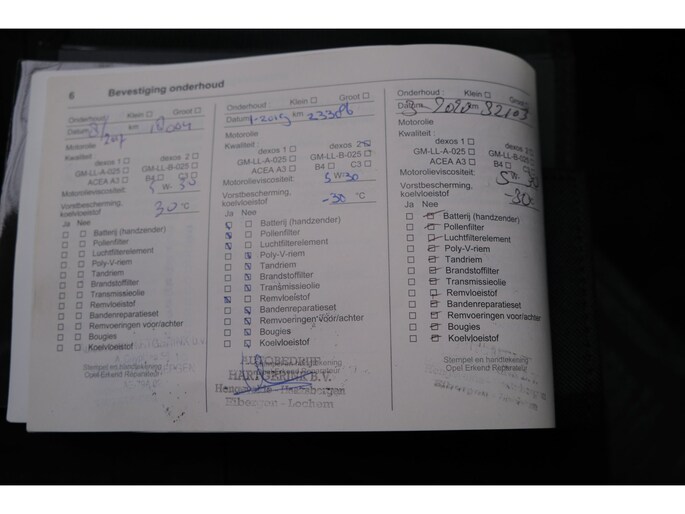 6 Bevestiging onderhoud
Onderhoud: Klein ☐ Groot ☐
Datum km
Motorolie
Kwaliteit :
dexos 1 ☐ dexos 2 ☐
GM-LL-A-025 ☐ GM-LL-B-025 ☐
ACEA A3 ☐ B4 ☐ C3 ☐
Motorolieviscositeit: 5 W- 30
Vorstbescherming,
koelvloeistof 30 °C
Ja Nee
☐ ☐ Batterij (handzender)
☐ ☐ Pollenfilter
☐ ☐ Luchtfilterelement
☐ ☐ Poly-V-riem
☐ ☐ Tandriem
☐ ☐ Brandstoffilter
☐ ☐ Transmissieolie
☐ ☐ Remvloeistof
☐ ☐ Bandenreparatieset
☐ ☐ Remvoeringen voor/achter
☐ ☐ Bougies
☐ ☐ Koelvloeistof
Stempel en handtekening
Opel Erkend Reparateur
Onderhoud : Klein ☐ Groot ☐
Datum km
Motorolie
Kwaliteit :
dexos 1 ☐ dexos 2
GM-LL-A-025 ☐ GM-LL-B-025 ☐
ACEA A3 ☐ B4 ☐ C3 ☐
Motorolieviscositeit: 5 W- 30
Vorstbescherming,
koelvloeistof -30 °C
Ja Nee
Batterij (handzender)
Pollenfilter
Luchtfilterelement
Poly-V-riem
Tandriem
Brandstoffilter
Transmissieolie
Remvloeistof
Bandenreparatieset
Remvoeringen voor/achter
Bougies
Koelvloeistof
AUTOBEDRIJF
HARTGERINK B.V.
Eibergen - Lochem
Onderhoud : Klein ☐ Groot ☐
Datum 2020 km
Motorolie
Kwaliteit :
dexos 1 ☐ dexos 2
GM-LL-A-025 ☐ GM-LL-B-025 ☐
ACEA A3 ☐ B4 ☐ C3 ☐
Motorolieviscositeit: 5 W- 30
Vorstbescherming,
koelvloeistof -30 °C
Ja Nee
Batterij (handzender)
Pollenfilter
Luchtfilterelement
Poly-V-riem
Tandriem
Brandstoffilter
Transmissieolie
Remvloeistof
Bandenreparatieset
Remvoeringen voor/achter
Bougies
Koelvloeistof
Stempel en handtekening
Opel Erkend Reparateur